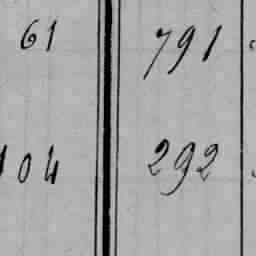 61 791
104 292